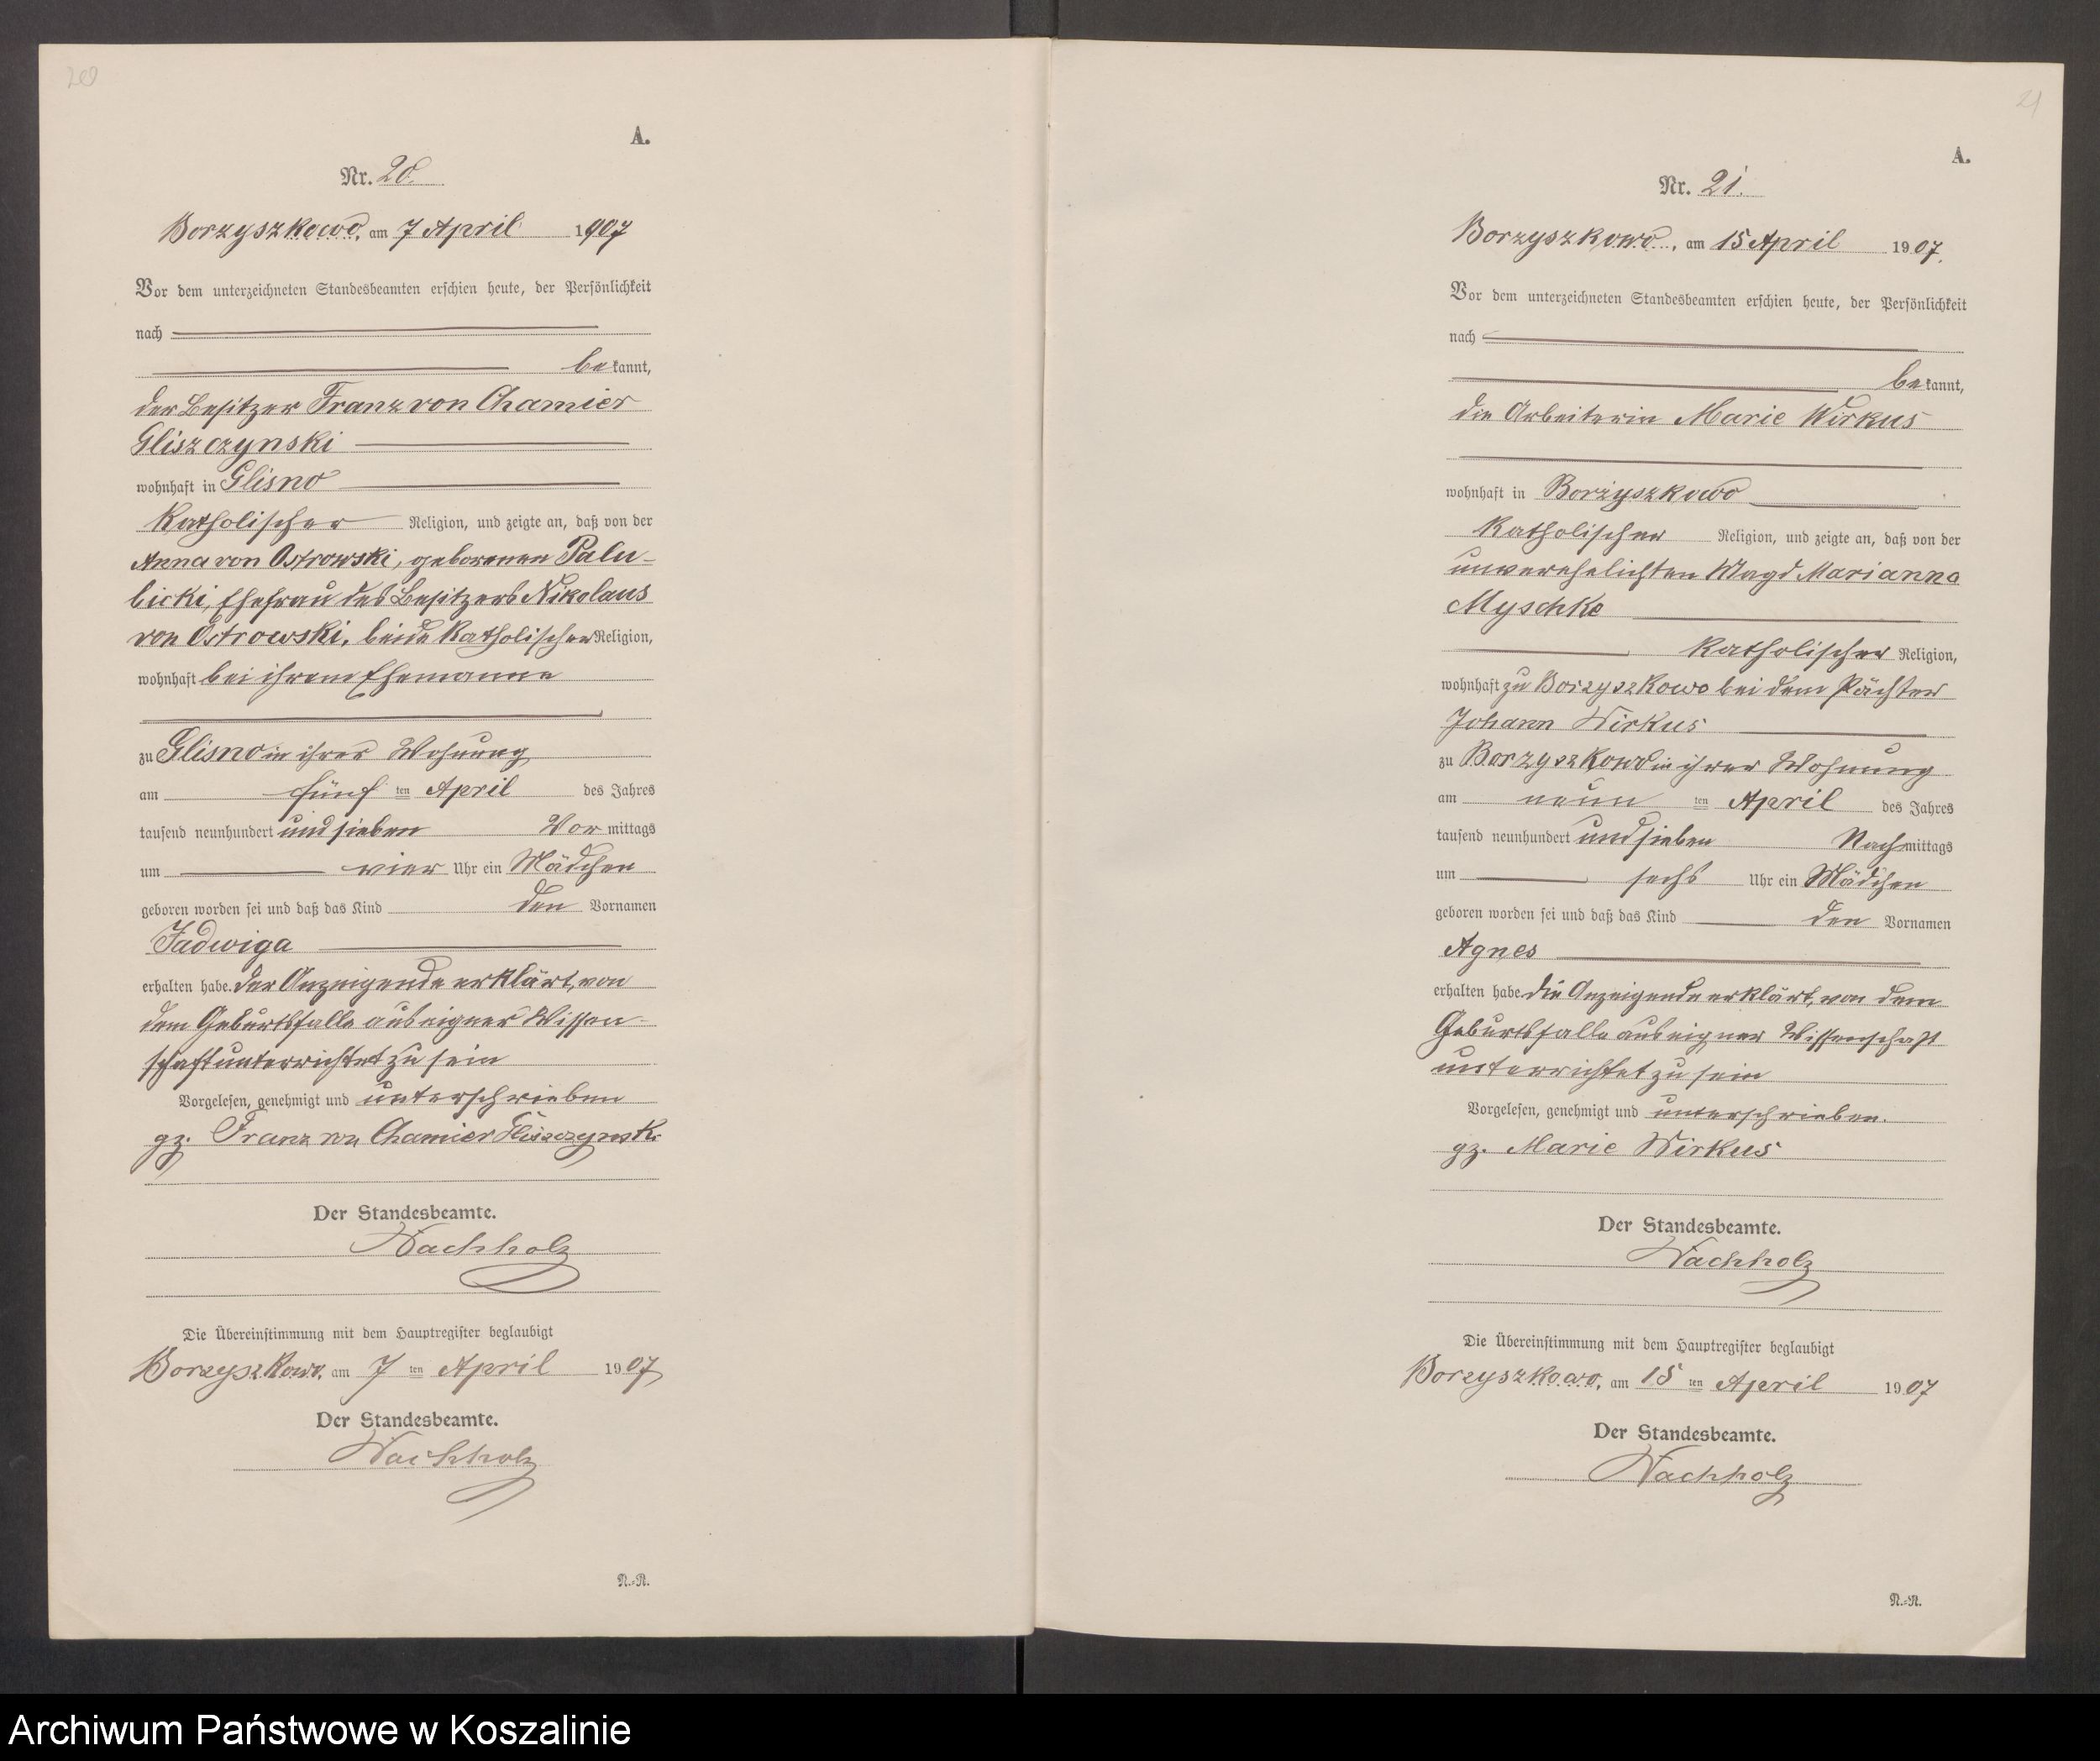 20
A.
Nr. 20.
Borzyszkowo, am 7 April 1907
Vor dem unterzeichneten Standesbeamten erschien heute, der Persönlichkeit
nach
bekannt,
der Besitzer Franz von Chamier
Gliszczynski
wohnhaft in Glisno
katholischer Religion, und zeigte an, daß von der
Anna von Ostrowski, geborenen Palu-
bicki, Ehefrau des Besitzers Nikolaus
von Ostrowski, beide katholischer Religion,
wohnhaft bei ihrem Ehemanne
zu Glisno in ihrer Wohnung
am fünf ten April des Jahres
tausend neunhundert und sieben Vormittags
um vier Uhr ein Mädchen
geboren worden sei und daß das Kind den Vornamen
Jadwiga
erhalten habe. Der Anzeigende erklärt, von
dem Geburtsfalle aus eigner Wissen-
schaft unterrichtet zu sein
Vorgelesen, genehmigt und unterschrieben
gz. Franz von Chamier Gliszczynski
Der Standesbeamte.
Wachholz
Die Übereinstimmung mit dem Hauptregister beglaubigt
Borzyszkowo, am 7 ten April 1907
Der Standesbeamte.
Wachholz
N.=R.
21
A.
Nr. 21.
Borzyszkowo, am 15 April 1907.
Vor dem unterzeichneten Standesbeamten erschien heute, der Persönlichkeit
nach
bekannt,
die Arbeiterin Marie Wirkus
wohnhaft in Borzyszkowo
katholischer Religion, und zeigte an, daß von der
unverehelichten Magd Marianna
Myschke
katholischer Religion,
wohnhaft zu Borzyszkowo bei dem Pächter
Johann Wirkus
zu Borzyszkowo in ihrer Wohnung
am neun ten April des Jahres
tausend neunhundert und sieben Nachmittags
um sechs Uhr ein Mädchen
geboren worden sei und daß das Kind den Vornamen
Agnes
erhalten habe. Die Anzeigende erklärt, von dem
Geburtsfalle aus eigner Wissenschaft
unterrichtet zu sein
Vorgelesen, genehmigt und unterschrieben.
gz. Marie Wirkus
Der Standesbeamte.
Wachholz
Die Übereinstimmung mit dem Hauptregister beglaubigt
Borzyszkowo, am 15 ten April 1907
Der Standesbeamte.
Wachholz
N.=R.
Archiwum Państwowe w Koszalinie